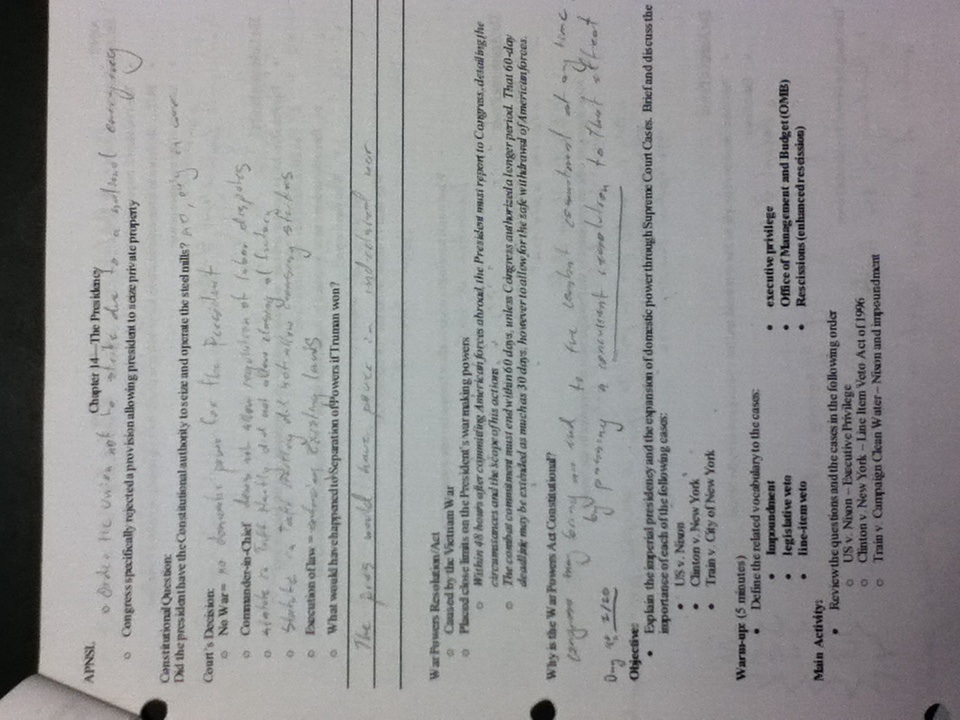 APNSL
Chapter 14—The Presidency
o Order the union not to strike due to a national emergency
o Congress specifically rejected a provision allowing president to seize private property
Constitutional Question:
Did the president have the Constitutional authority to seize and operate the steel mills? no, only in war
Court's Decision:
o No War= no domestic power for the President
o Commander-in-Chief does not allow regulation of labor disputes
o statute in Taft Hartly did not allow closing of factory
o Statute in Taft Hartley did not allow strikes
o Execution of law = enforcing existing laws
o What would have happened to Separation of Powers if Truman won?
The pres would have power in war
War Powers Resolution/Act
o Caused by the Vietnam War
o Placed close limits on the President's war making powers
o Within 48 hours after committing American forces abroad, the President must report to Congress, detailing the
circumstances and the scope of his actions.
o The combat commitment must end within 60 days, unless Congress authorized a longer period. That 60-day
deadline may be extended as much as 30 days, however to allow for the safe withdrawal of American forces.
Why is the War Powers Act Constitutional?
congress may bring an end to the combat commitment at any time
by passing a concurrent resolution to that effect
Day 2/20
Objective:
• Explain the imperial presidency and the expansion of domestic power through Supreme Court Cases. Brief and discuss the
importance of each of the following cases:
• US v. Nixon
• Clinton v. New York
• Train v. City of New York
Warm-up: (5 minutes)
• Define the related vocabulary to the cases:
• Impoundment
• legislative veto
• line-item veto
• executive privilege
• Office of Management and Budget (OMB)
• Rescissions (enhanced rescission)
Main Activity:
• Review the questions and the cases in the following order
o US v. Nixon – Executive Privilege
o Clinton v. New York – Line Item Veto Act of 1996
o Train v. Campaign Clean Water – Nixon and impoundment